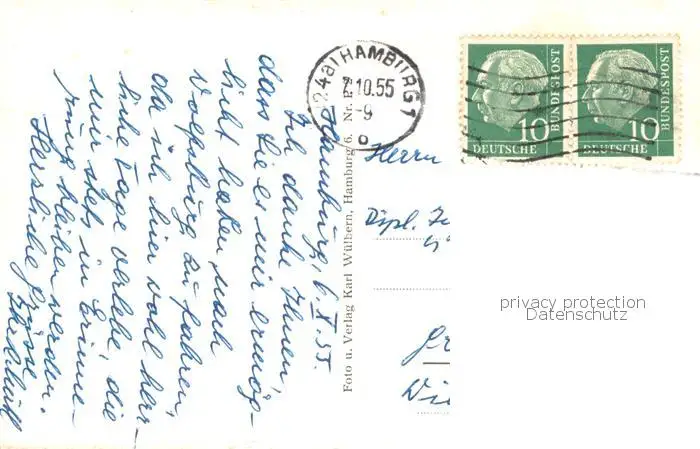 Hamburg, 6. X. 55.
Ich danke Ihnen,
dass Sie es mir ermög-
licht haben, nach
Wolfsburg zu fahren,
da ich hier wohl herr-
liche Tage verlebe, die
mir stets in Erinne-
rung bleiben werden.
Herzliche Grüsse
Foto u. Verlag Karl Wülbern, Hamburg 6. Nr.
(24a) HAMBURG 1
7.10.55
-9
o
10
DEUTSCHE
BUNDESPOST
10
DEUTSCHE
BUNDESPOST
Herrn
Dipl.
privacy protection
Datenschutz